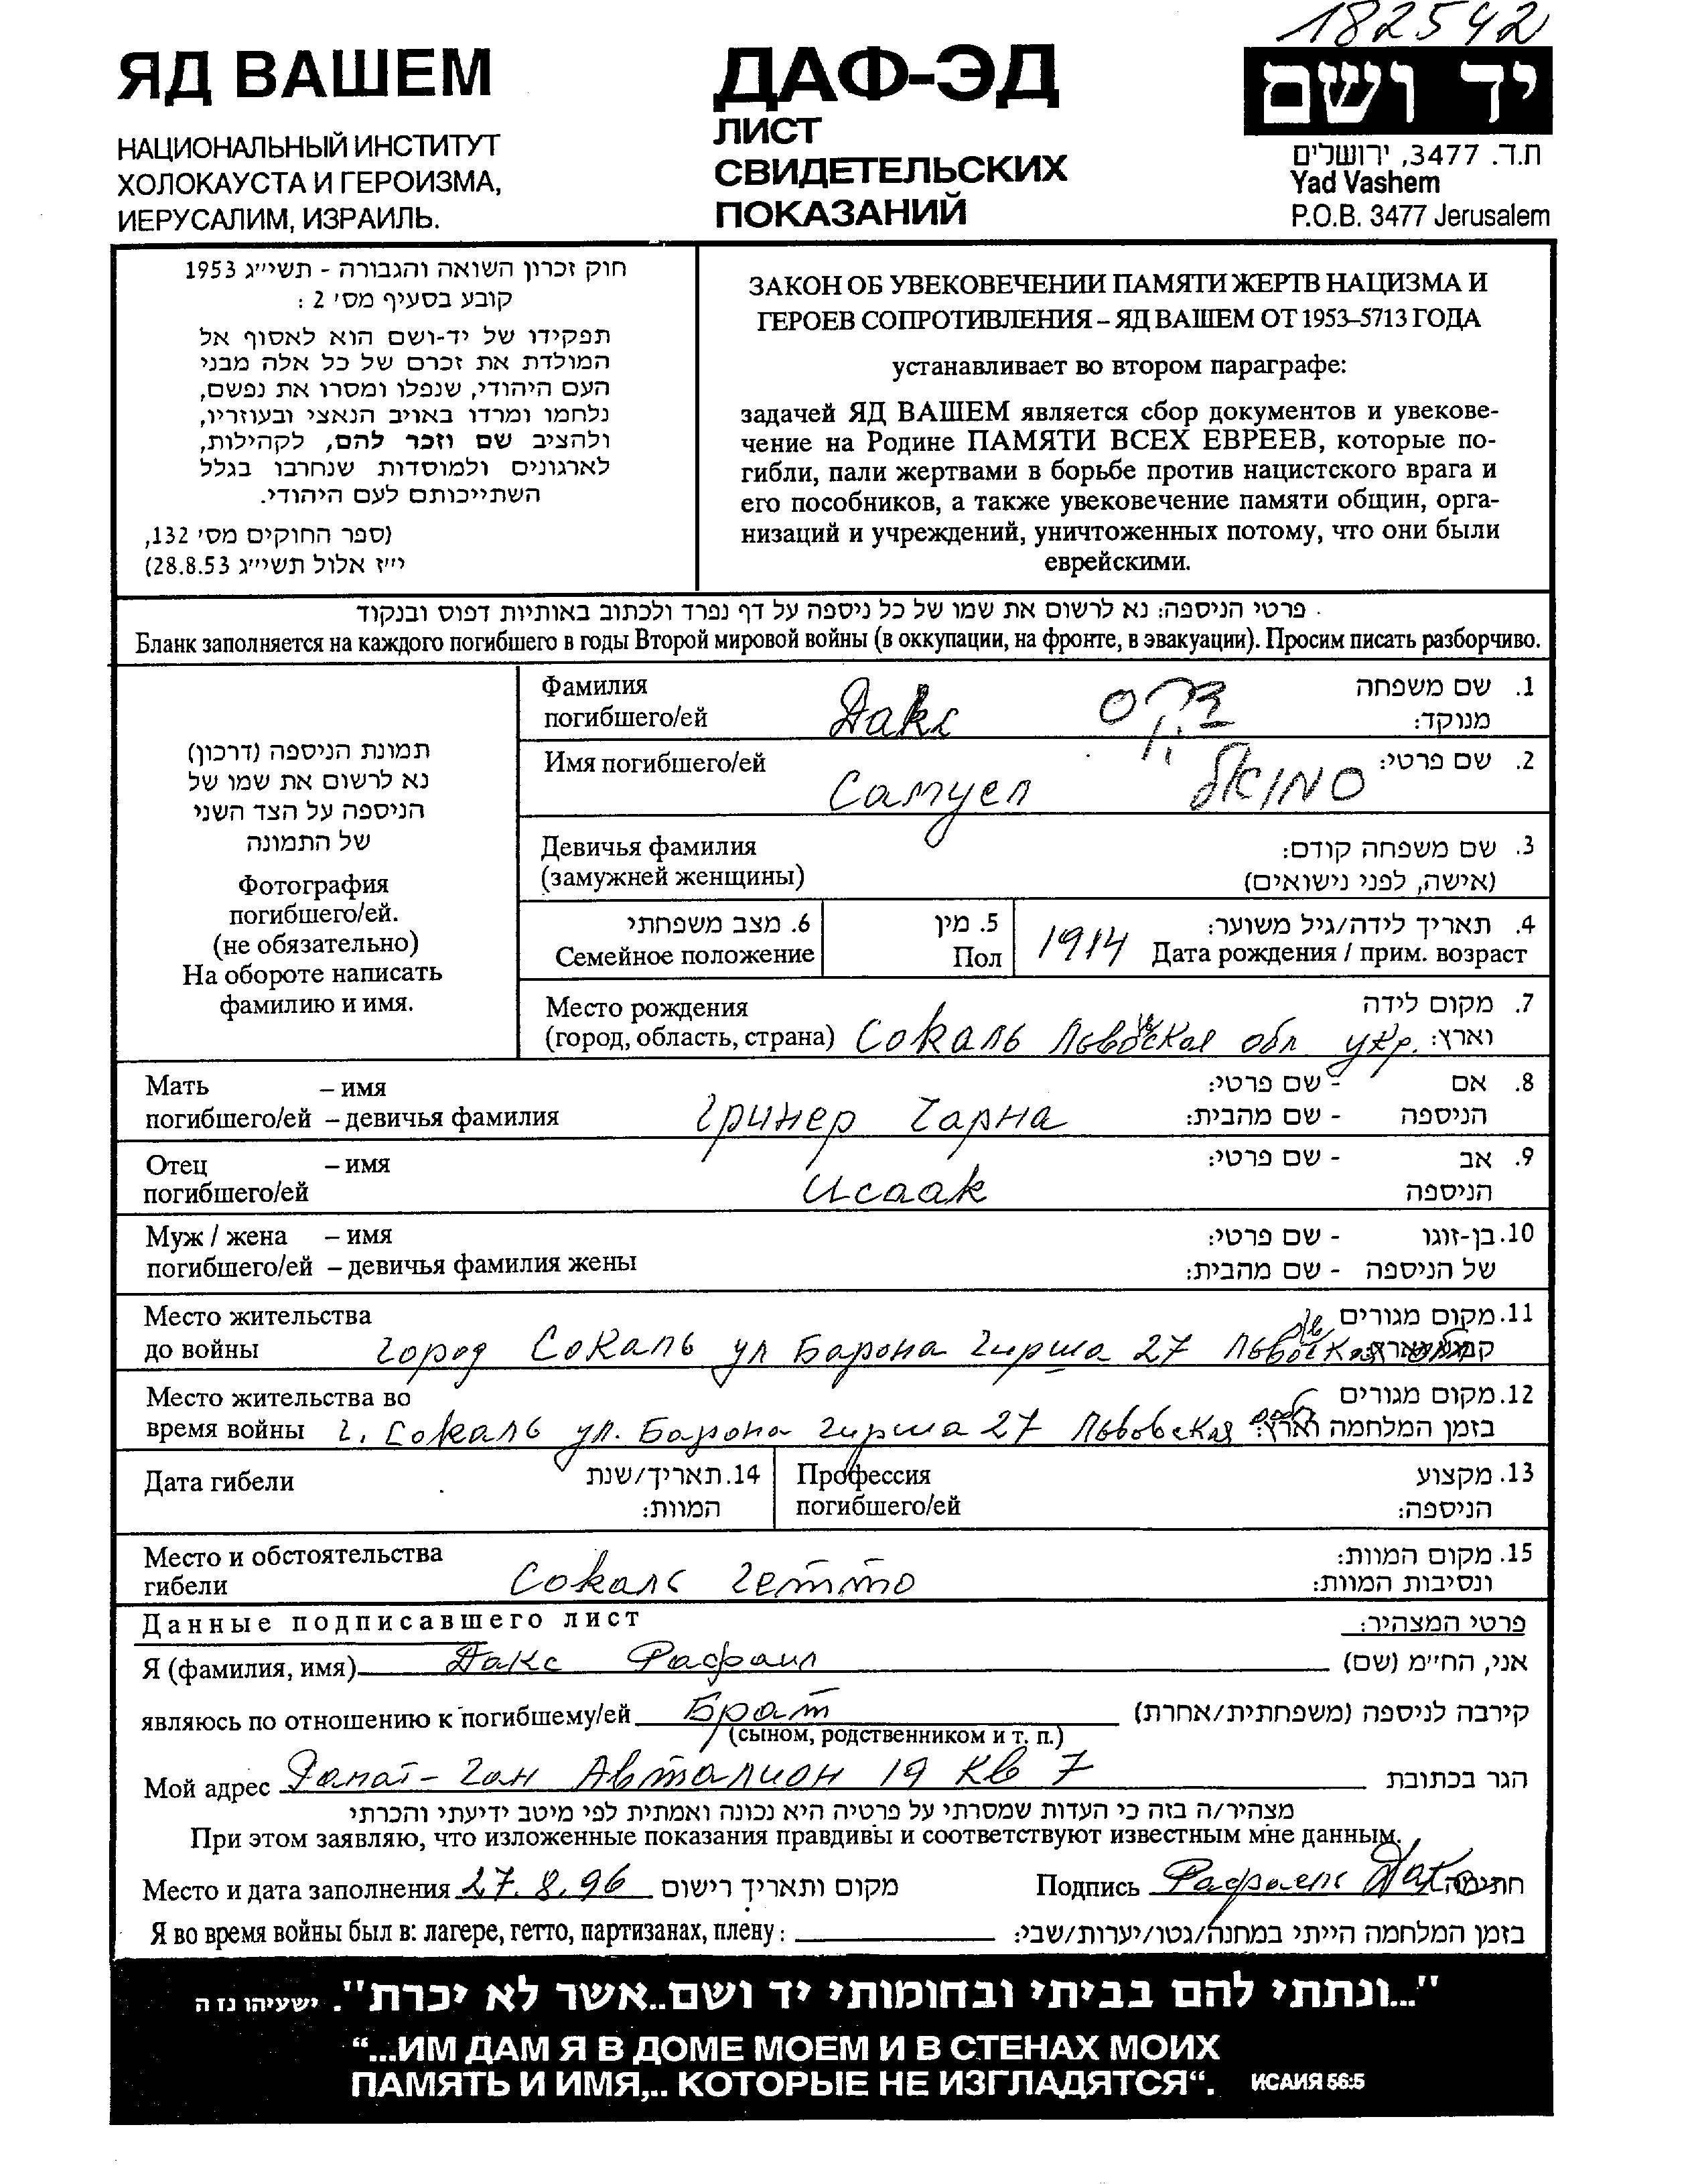 182542
ЯД ВАШЕМ
НАЦИОНАЛЬНЫЙ ИНСТИТУТ
ХОЛОКАУСТА И ГЕРОИЗМА,
ИЕРУСАЛИМ, ИЗРАИЛЬ.
ДАФ-ЭД
ЛИСТ
СВИДЕТЕЛЬСКИХ
ПОКАЗАНИЙ
יד ושם
ת.ד. 3477, ירושלים
Yad Vashem
P.O.B. 3477 Jerusalem
חוק זכרון השואה והגבורה - תשי״ג 1953
קובע בסעיף מס׳ 2 :
תפקידו של יד-ושם הוא לאסוף אל
המולדת את זכרם של כל אלה מבני
העם היהודי, שנפלו ומסרו את נפשם,
נלחמו ומרדו באויב הנאצי ובעוזריו,
ולהציב שם וזכר להם, לקהילות,
לארגונים ולמוסדות שנחרבו בגלל
השתייכותם לעם היהודי.
(ספר החוקים מס׳ 132,
י״ז אלול תשי״ג 28.8.53)
ЗАКОН ОБ УВЕКОВЕЧЕНИИ ПАМЯТИ ЖЕРТВ НАЦИЗМА И
ГЕРОЕВ СОПРОТИВЛЕНИЯ – ЯД ВАШЕМ ОТ 1953–5713 ГОДА
устанавливает во втором параграфе:
задачей ЯД ВАШЕМ является сбор документов и увекове-
чение на Родине ПАМЯТИ ВСЕХ ЕВРЕЕВ, которые по-
гибли, пали жертвами в борьбе против нацистского врага и
его пособников, а также увековечение памяти общин, орга-
низаций и учреждений, уничтоженных потому, что они были
еврейскими.
פרטי הניספה: נא לרשום את שמו של כל ניספה על דף נפרד ולכתוב באותיות דפוס ובנקוד
Бланк заполняется на каждого погибшего в годы Второй мировой войны (в оккупации, на фронте, в эвакуации). Просим писать разборчиво.
תמונת הניספה (דרכון)
נא לרשום את שמו של
הניספה על הצד השני
של התמונה
Фотография
погибшего/ей.
(не обязательно)
На обороте написать
фамилию и имя.
Фамилия 1. שם משפחה
погибшего/ей Дакс דקס מנוקד:
Имя погибшего/ей 2. שם פרטי:
Самуел סמואל
Девичья фамилия 3. שם משפחה קודם:
(замужней женщины) (אישה, לפני נישואים)
6. מצב משפחתי 5. מין 4. תאריך לידה/גיל משוער:
Семейное положение Пол 1914 Дата рождения / прим. возраст
Место рождения 7. מקום לידה
(город, область, страна) Сокаль Львовская обл. укр. וארץ:
Мать – имя 8. אם - שם פרטי:
погибшего/ей – девичья фамилия Гринер Чарна הניספה - שם מהבית:
Отец – имя 9. אב - שם פרטי:
погибшего/ей Исаак הניספה
Муж / жена – имя 10. בן-זוגו - שם פרטי:
погибшего/ей – девичья фамилия жены של הניספה - שם מהבית:
Место жительства 11. מקום מגורים
до войны город Сокаль ул Барона Гирша 27 Львовская
Место жительства во 12. מקום מגורים
время войны г. Сокаль ул. Барона Гирша 27 Львовская בזמן המלחמה וארץ:
Дата гибели 14. תאריך/שנת המוות: Профессия 13. מקצוע
погибшего/ей הניספה:
Место и обстоятельства 15. מקום המוות:
гибели Сокаль гетто ונסיבות המוות:
Данные подписавшего лист פרטי המצהיר:
Я (фамилия, имя) Дакс Рафаил אני, הח״מ (שם)
являюсь по отношению к погибшему/ей Брат קירבה לניספה (משפחתית/אחרת)
(сыном, родственником и т. п.)
Мой адрес Рамат-Ган Авталион 19 кв 7 הגר בכתובת
מצהיר/ה בזה כי העדות שמסרתי על פרטיה היא נכונה ואמתית לפי מיטב ידיעתי והכרתי
При этом заявляю, что изложенные показания правдивы и соответствуют известным мне данным.
Место и дата заполнения 27.8.96 מקום ותאריך רישום Подпись Рафаель Дакс חתימה
Я во время войны был в: лагере, гетто, партизанах, плену: בזמן המלחמה הייתי במחנה/גטו/יערות/שבי:
"...ונתתי להם בביתי ובחומותי יד ושם..אשר לא יכרת". ישעיהו נז ה
“...ИМ ДАМ Я В ДОМЕ МОЕМ И В СТЕНАХ МОИХ
ПАМЯТЬ И ИМЯ,.. КОТОРЫЕ НЕ ИЗГЛАДЯТСЯ“. ИСАИЯ 56:5